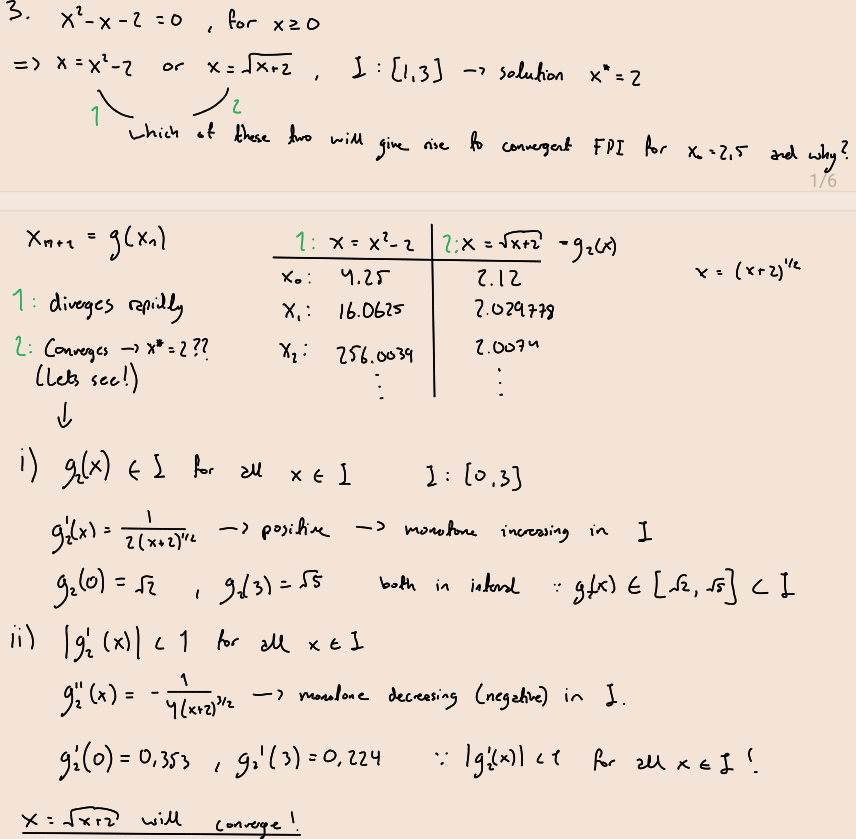 3. x² - x - 2 = 0 , for x ≥ 0
=> x = x² - 2 or x = √(x+2) , I : [1,3] → solution x* = 2
1 2
which of these two will give rise to convergent FPI for x₀ = 2,5 and why?
1/6
xₙ₊₁ = g(xₙ)
1: x = x² - 2 | 2: x = √(x+2) - g₂(x)
x = (x+2)^(1/2)
x₀: 4.25 | 2.12
1: diveges rapidly
x₁: 16.0625 | 2.029778
2: Converges → x* = 2??
x₂: 256.0039 | 2.0074
(Lets see!)
↓
i) g₂(x) ∈ I for all x ∈ I I : [0,3]
g₂'(x) = 1/(2(x+2)^(1/2)) → positive → monotone increasing in I
g₂(0) = √2 , g₂(3) = √5 both in interval ∵ g₂(x) ∈ [√2, √5] ⊂ I
ii) |g₂'(x)| < 1 for all x ∈ I
g₂''(x) = - 1/(4(x+2)^(3/2)) → monotone decreasing (negative) in I.
g₂'(0) = 0,353 , g₂'(3) = 0,224 ∵ |g₂'(x)| < 1 for all x ∈ I !
x = √(x+2) will converge!